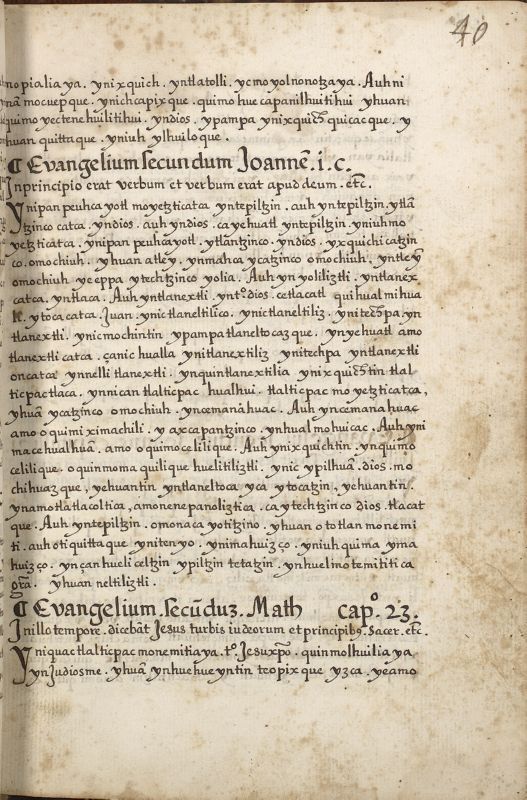 40
nopialiaya. ynixquich. yntlatolli. ycmoyolnonotzaya. Auh ni
mā mocuepque. ynichcapixque. quimohuecapanilhuitihui yhuan
quimoyectenehuilitihui. yndios. ypampa ynixquich̄ quicacque. y
huan quittaque. yniuh ylhuiloque.
¶ Evangelium secundum Joannē. i. c.
In principio erat verbum et verbum erat apud deum. etc̄.
Ynipan peuhcayotl moyetzticatca yntepiltzin. auh yntepiltzin. ytlā
tzinco catca. yndios. auh yndios. ca yehuatl yntepiltzin. yniuh mo
yetzticatca. ynipan peuhcayotl. ytlantzinco. yndios. yxquichi catzin
co. omochiuh. yhuan atley. ynmahca ycatzinco omochiuh. yntleȳ
omochiuh yceppa ytechtzinco yolia. Auh yn yoliliztli. yntlanex
catca, yntlaca. Auh yntlanextli. yntº. dios. ce tlacatl quihualmihua
li. ytoca catca. Juan. ynic tlaneltilico. ynic tlaneltiliz. ynitechpa. yn
tlanextli. ynic mochintin ypampa tlaneltocazque. yn yehuatl amo
tlanextli catca. çanic hualla ynitlanextiliz ynitechpa yntlanextli
on catca ynnelli tlanextli. ynquintlanextilia ynixquich̄tin tlal
ticpactlaca. ynnican tlalticpac hualhui. tlalticpac moyetzticatca,
yhuā ycatzinco omochiuh yncemanahuac. Auh yncemanahuac
amo oquimiximachili. yaxcapantzinco. ynhualmohuicac. Auh yni
macehualhuā. amo oquimocelilique. Auh ynixquichtin. ynquimo
celilique. oquinmomaquilique huelitiliztli. ynic ypilhuā. dios. mo
chihuazque, yehuantin yntlaneltoca yca ytocatzin. yehuantin.
ynamo tlatlacoltica, amo nenepanoliztica. ca ytechtzinco dios tlacat
que. Auh yntepiltzin. omonacayotitzino. yhuan ototlan monemi
ti. auh otiquittaque ynitenyo. ynimahuizço. yniuh quima yma
huizço. ynçan hueli celtzin ypiltzin tetatzin. ynhuelinotemititica
grā. ȳhuan neltiliztli.
¶ Evangelium. secūduz. Math capº. 23.
In illo tempore. dicebāt Jesus turbis iudeorum et principibꝰ. Sacer. etc̄.
Yniquac tlalticpac monemitiaya. tº. Jesu xp̄o. quinmolhuiliaya,
yn Judiosme. yhuā ynhuehueyntin teopixque yzca. yeamo